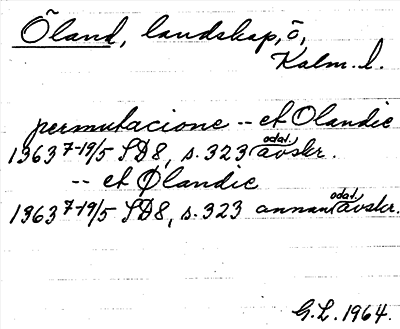 Öland, landskap, ö,
Kalm. l.
permutacione -- et Olandie
1363 7-19/5 SD8, s. 323 odat. avskr.
-- et Ølandie
1363 7-19/5 SD8, s. 323 annan odat. avskr.
G.L. 1964.